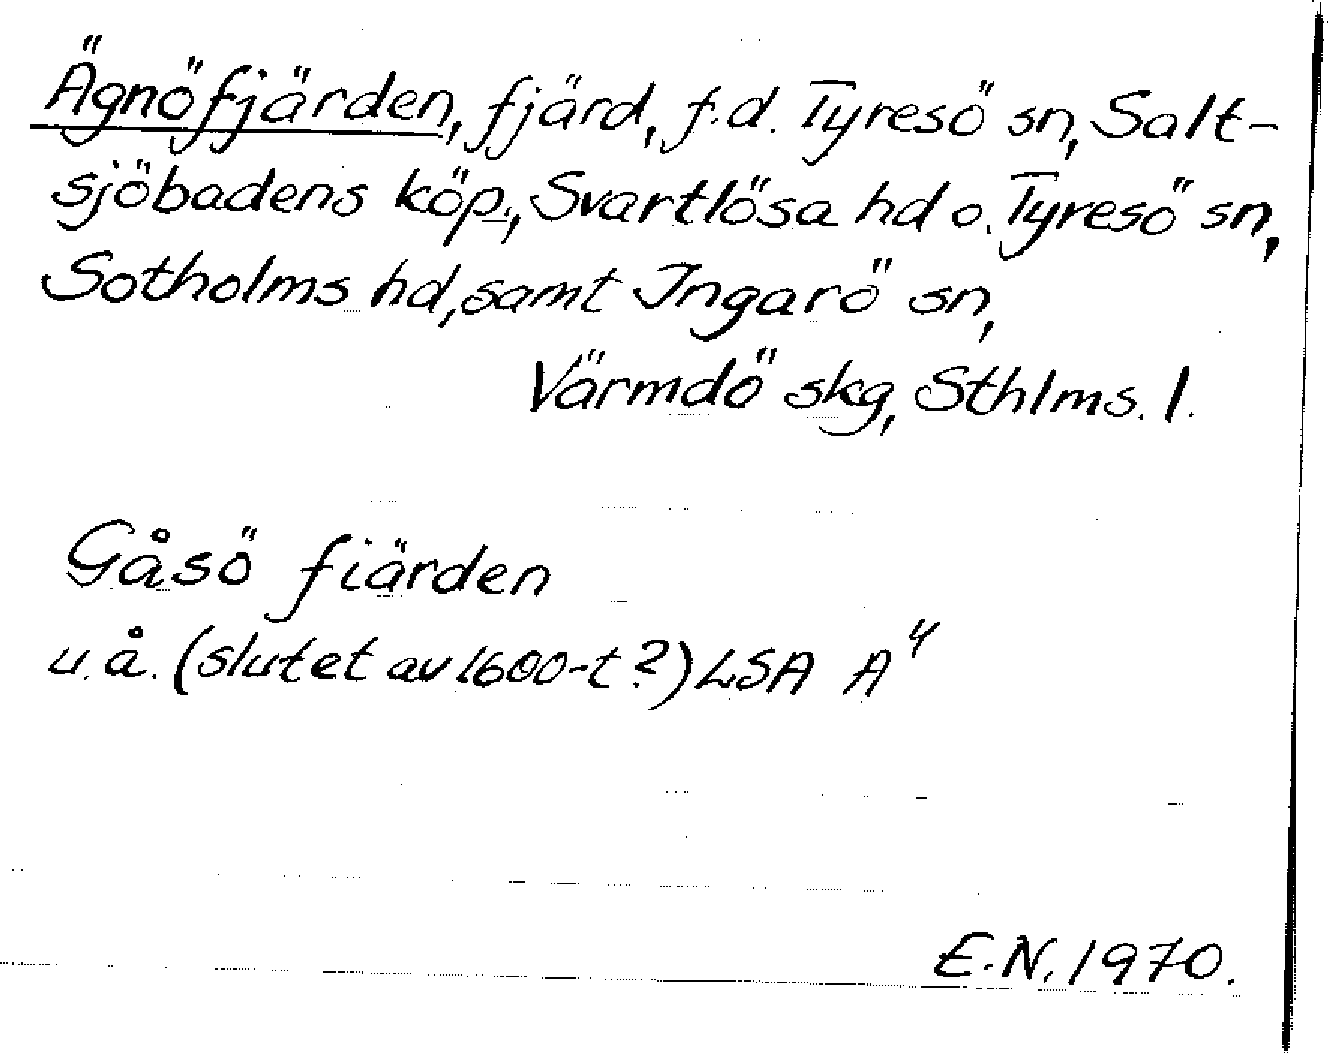 Ägnöfjärden, fjärd, f.d. Tyresö sn, Salt-
sjöbadens köp., Svartlösa hd o. Tyresö sn,
Sotholms hd, samt Ingarö sn,
Värmdö skg, Sthlms. l.
Gåsö fiärden
u.å. (slutet av 1600-t?) LSA A⁴
E.N. 1970.